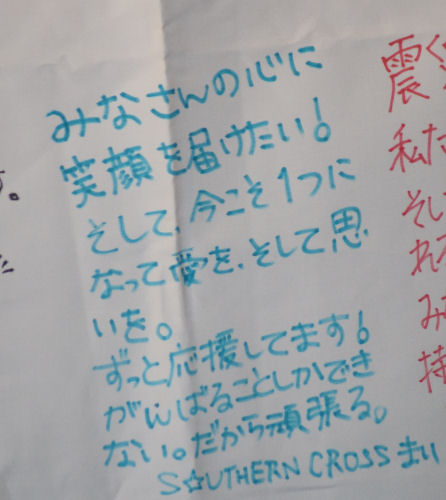 みなさんの心に
笑顔を届けたい!
そして、今こそ1つに
なって愛を、そして思
いを。
ずっと応援してます!
がんばることしかでき
ない。だから頑張る。
S☆UTHERN CROSS まい
震
私た
そし
れ
み
す。